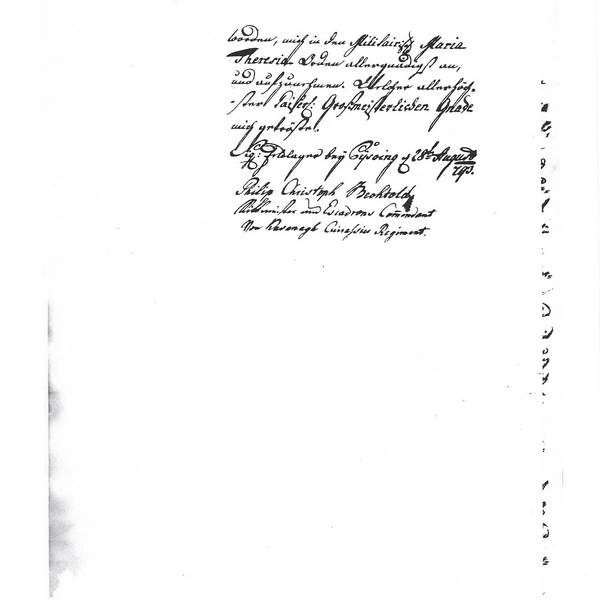 worden, mich in den Militairisch Maria
Theresia Orden allergnädigst an,
und aufzunehmen. Welcher allerhöch-
-ster Kaiserl: Großmeisterlichen Gnade
mich getröste.
Sig: Feldlager bey Cisoing d 28t August
793.
Philip Christoph Bechtold
Rittmeister und Escadrons Commendant
Von Kavanagh Cuirassier Regiment.